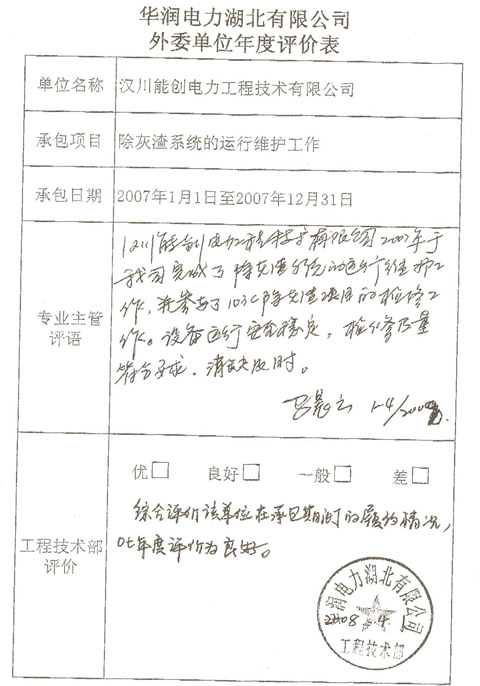 华润电力湖北有限公司
外委单位年度评价表
单位名称 汉川能创电力工程技术有限公司
承包项目 除灰渣系统的运行维护工作
承包日期 2007年1月1日至2007年12月31日
专业主管
评语
汉川能创电力工程技术有限公司2007年于
我司完成了除灰渣系统的运行维护工
作,并参与了除灰渣项目的检修工
作。设备运行安全稳定,检修质量
符合要求,消缺及时。
1-4/2008
优□ 良好□ 一般□ 差□
工程技术部
评价
综合评价该单位在承包期间的履约情况,
07年度评价为良好。
华润电力湖北有限公司
2008. 1.4.
工程技术部